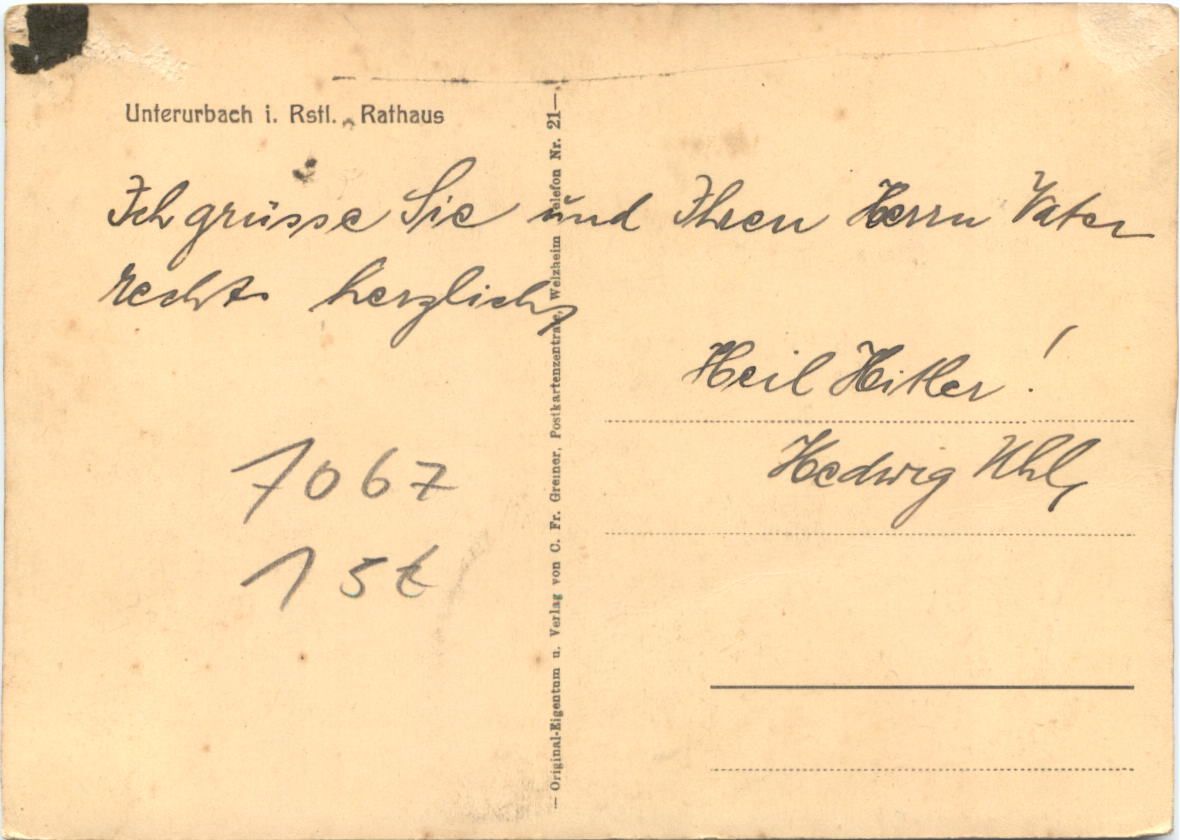 Unterurbach i. Rstl. Rathaus
Ich grüsse Sie und Ihren Herrn Vater
recht herzlich,
Heil Hitler!
Hedwig Uhl,
7067
15t
— Original-Eigentum u. Verlag von C. Fr. Greiner, Postkartenzentrale, Welzheim Telefon Nr. 21 —